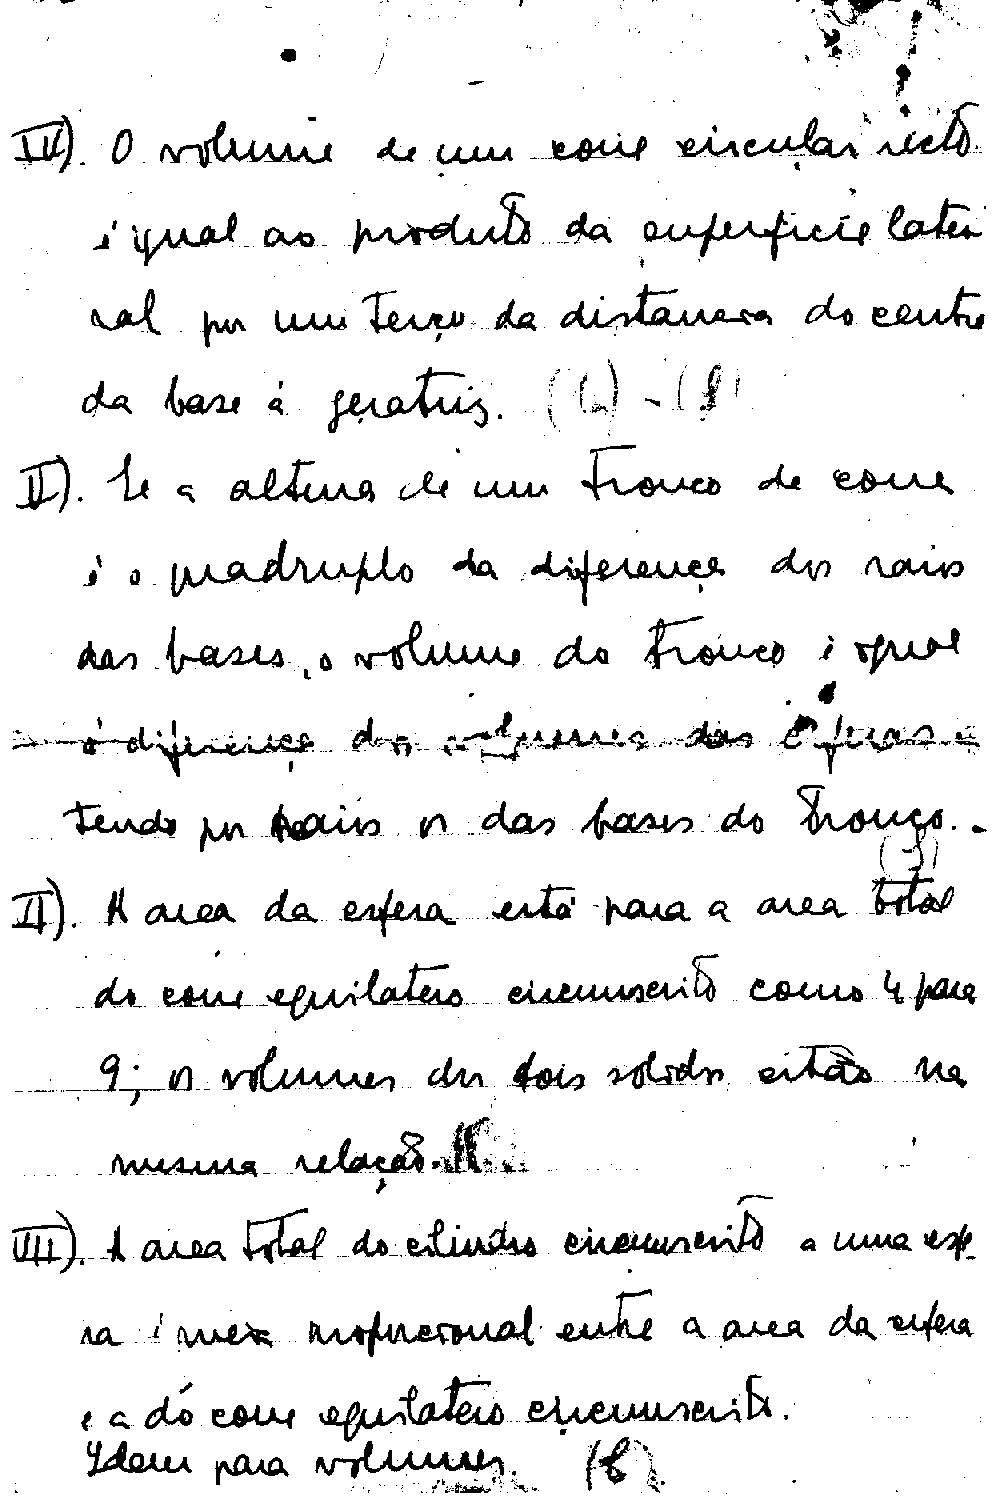 IV). O volume de um cone circular recto
é igual ao produto da superficie late
ral por um terço da distancia do centro
da base á geratriz.
V). Se a altura de um tronco de cone
é o quadruplo da diferença dos raios
das bases, o volume do tronco é igual
á diferença dos volumes das esferas
tendo por raios os das bases do tronco.
II). A area da esfera está para a area total
do cone equilatero circunscrito como 4 para
9; os volumes dos dois solidos estão na
mesma relação.
III). A area total do cilindro circunscrito a uma esfe
ra é meia proporcional entre a area da esfera
e a do cone equilatero circunscrito.
Idem para volumes.